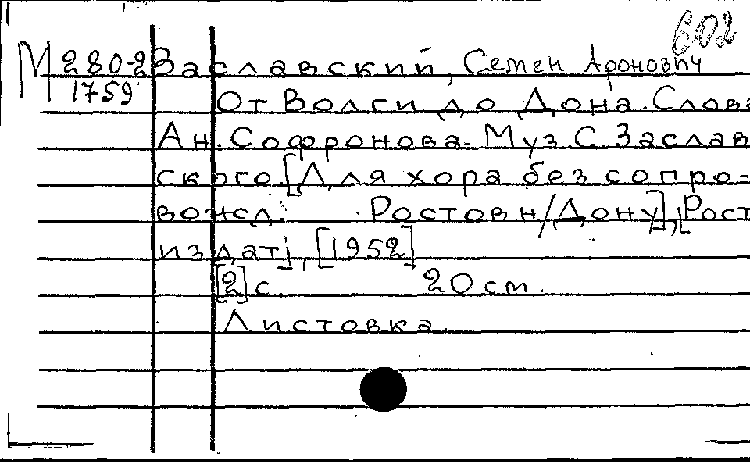 602
М 280-2 Заславский, Семен Аронович
1759
От Волги до Дона. Слова
Ан. Софронова. Муз. С. Заслав-
ского. [Для хора без сопро-
вожд. Ростов н/Дону], [Рост
издат], [1952]
[2] с. 20 см.
Листовка.